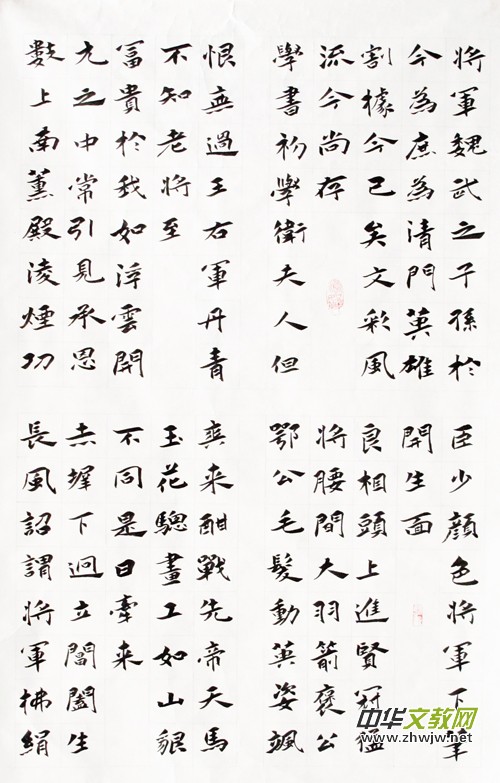 將軍魏武之子孫於
今為庶為清門英雄
割據今已矣文彩風
流今尚存
學書初學衛夫人但
恨無過王右軍丹青
不知老將至
富貴於我如浮雲開
元之中常引見承恩
數上南薰殿淩煙功
臣少顏色將軍下筆
開生面
良相頭上進賢冠猛
將腰間大羽箭褒公
鄂公毛髮動英姿颯
爽来酣戰先帝天馬
玉花驄畫工如山貌
不同是日牽来
赤墀下迥立閶闔生
長風詔謂將軍拂絹
中华文教网
www.zhwjw.net